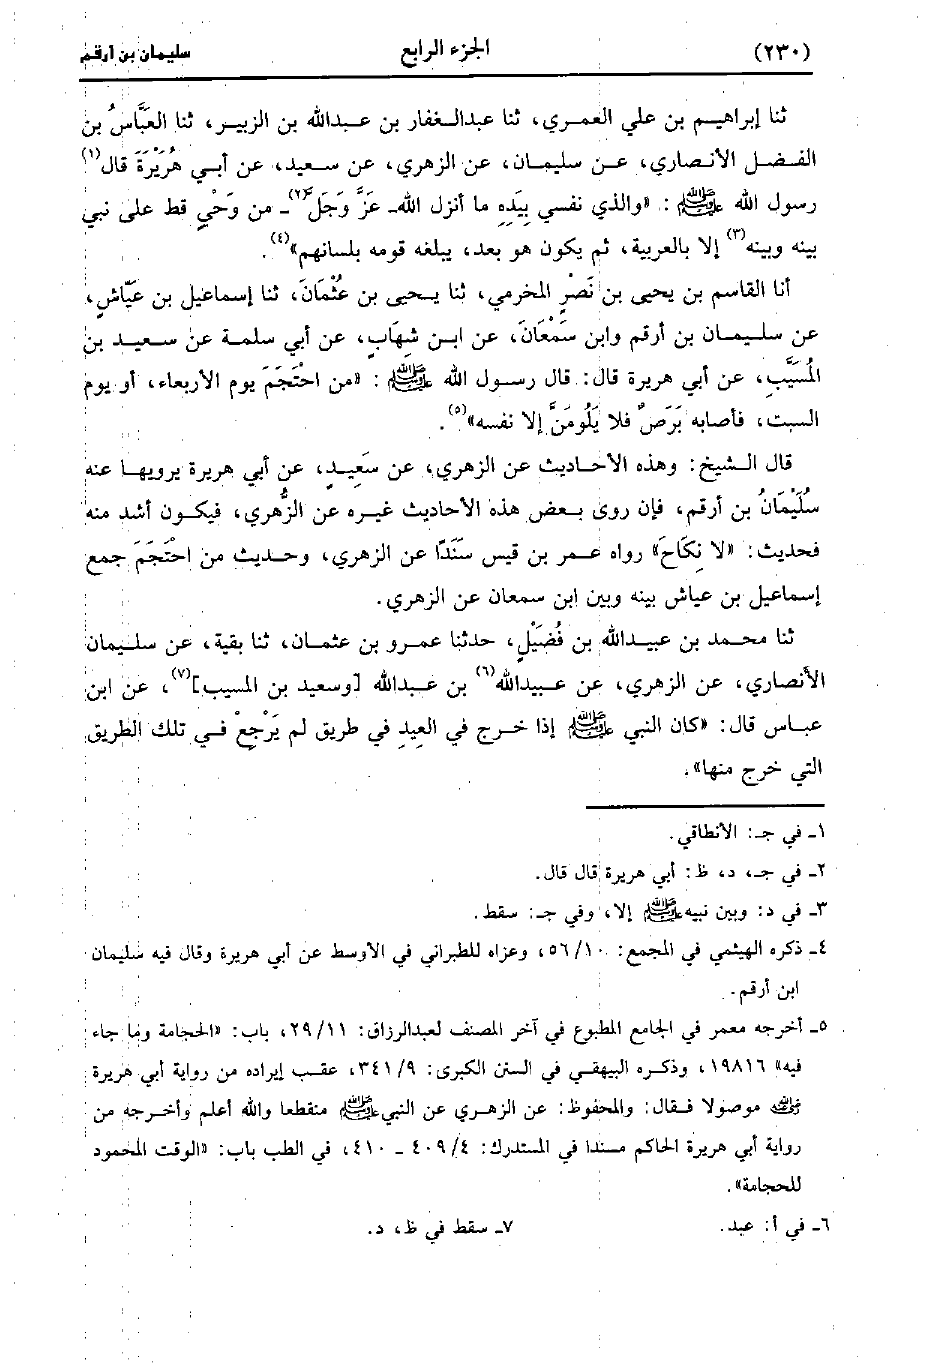 (٢٣٠) الجزء الرابع سليمان بن أرقم
ثنا إبراهيم بن علي العمري، ثنا عبدالغفار بن عبدالله بن الزبير، ثنا العَبَّاسُ بن
الفضل الأنصاري، عن سليمان، عن الزهري، عن سعيد، عن أبي هُرَيْرَةَ قال(١)
رسول الله ﷺ : «والذي نفسي بِيَدِهِ ما أنزل الله ـ عَزَّ وَجَلَّ(٢) ـ من وَحْيٍ قط على نبي
بينه وبينه(٣) إلا بالعربية، ثم يكون هو بعد، يبلغه قومه بلسانهم»(٤).
أنا القاسم بن يحيى بن نَصْرٍ المخرمي، ثنا يحيى بن عُثْمَانَ، ثنا إسماعيل بن عيّاشٍ،
عن سليمان بن أرقم وابن سَمْعَانَ، عن ابن شِهَابٍ، عن أبي سلمة عن سعيد بن
المُسَيَّبِ، عن أبي هريرة قال: قال رسول الله ﷺ : «من احْتَجَمَ يوم الأربعاء، أو يوم
السبت، فأصابه بَرَصٌ فلا يَلُومَنَّ إلا نفسه»(٥).
قال الشيخ: وهذه الأحاديث عن الزهري، عن سَعِيدٍ، عن أبي هريرة يرويها عنه
سُلَيْمَانُ بن أرقم، فإن روى بعض هذه الأحاديث غيره عن الزُّهري، فيكون أشد منه
فحديث: «لا نِكَاحَ» رواه عمر بن قيس سَنَدًا عن الزهري، وحديث من احْتَجَمَ جمع
إسماعيل بن عياش بينه وبين ابن سمعان عن الزهري.
ثنا محمد بن عبيدالله بن فُضَيْلٍ، حدثنا عمرو بن عثمان، ثنا بقية، عن سليمان
الأنصاري، عن الزهري، عن عبيدالله(٦) بن عبدالله [وسعيد بن المسيب](٧)، عن ابن
عباس قال: «كان النبي ﷺ إذا خرج في العيدِ في طريق لم يَرْجِعْ في تلك الطريق
التي خرج منها».
١ـ في جـ: الأنطاقي.
٢ـ في جـ، د، ظ: أبي هريرة قال قال.
٣ـ في د: وبين نبيه ﷺ إلا، وفي جـ: سقط.
٤ـ ذكره الهيثمي في المجمع: ٥٦/١٠، وعزاه للطبراني في الأوسط عن أبي هريرة وقال فيه سليمان
ابن أرقم.
٥ـ أخرجه معمر في الجامع المطبوع في آخر المصنف لعبدالرزاق: ٢٩/١١، باب: «الحجامة وما جاء
فيه» ١٩٨١٦، وذكره البيهقي في السنن الكبرى: ٣٤١/٩، عقب إيراده من رواية أبي هريرة
رضي الله عنه موصولا فقال: والمحفوظ: عن الزهري عن النبي ﷺ منقطعا والله أعلم وأخرجه من
رواية أبي هريرة الحاكم مسندا في المستدرك: ٤٠٩/٤ ـ ٤١٠، في الطب باب: «الوقت المحمود
للحجامة».
٦ـ في أ: عبد. ٧ـ سقط في ظ، د.